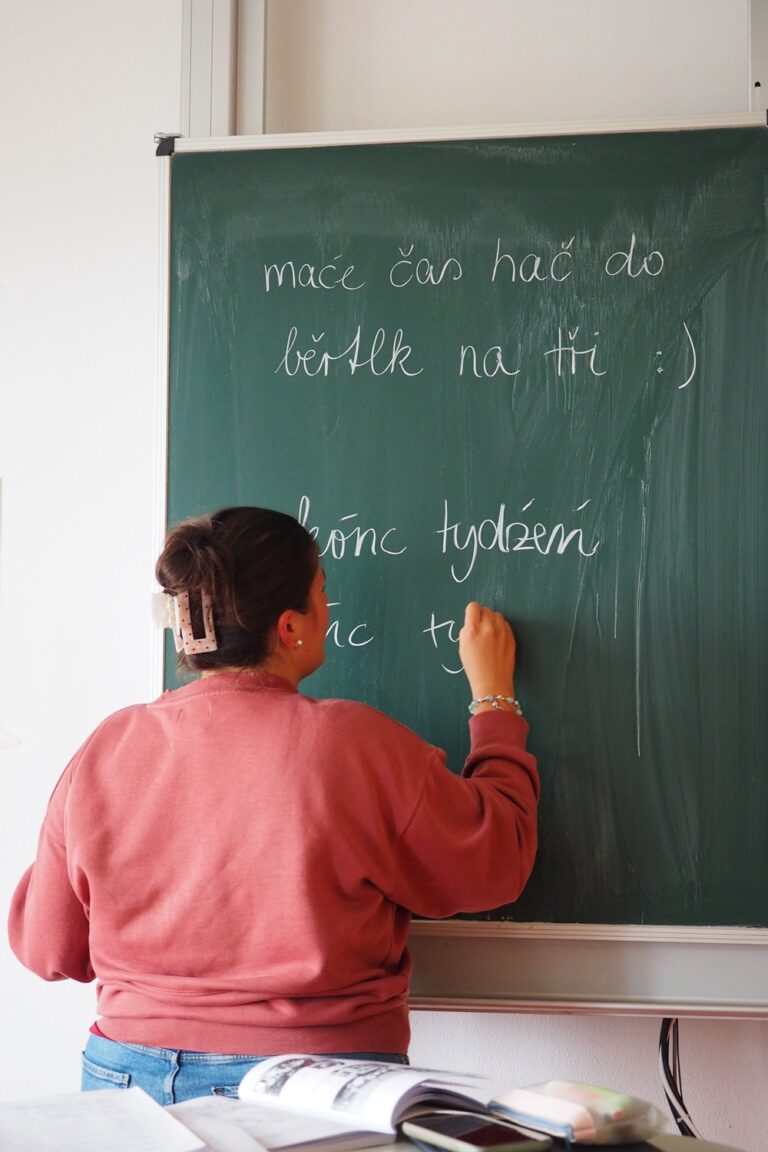 maće čas hač do
běrtlk na tři :)
kónc tydźeń
ty